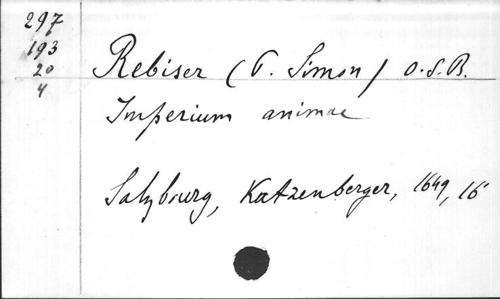 297
193
20
4
Rebiser (P. Simon) O.S.B.
Imperium animae
Salzburg, Katzenberger, 1649, 16°